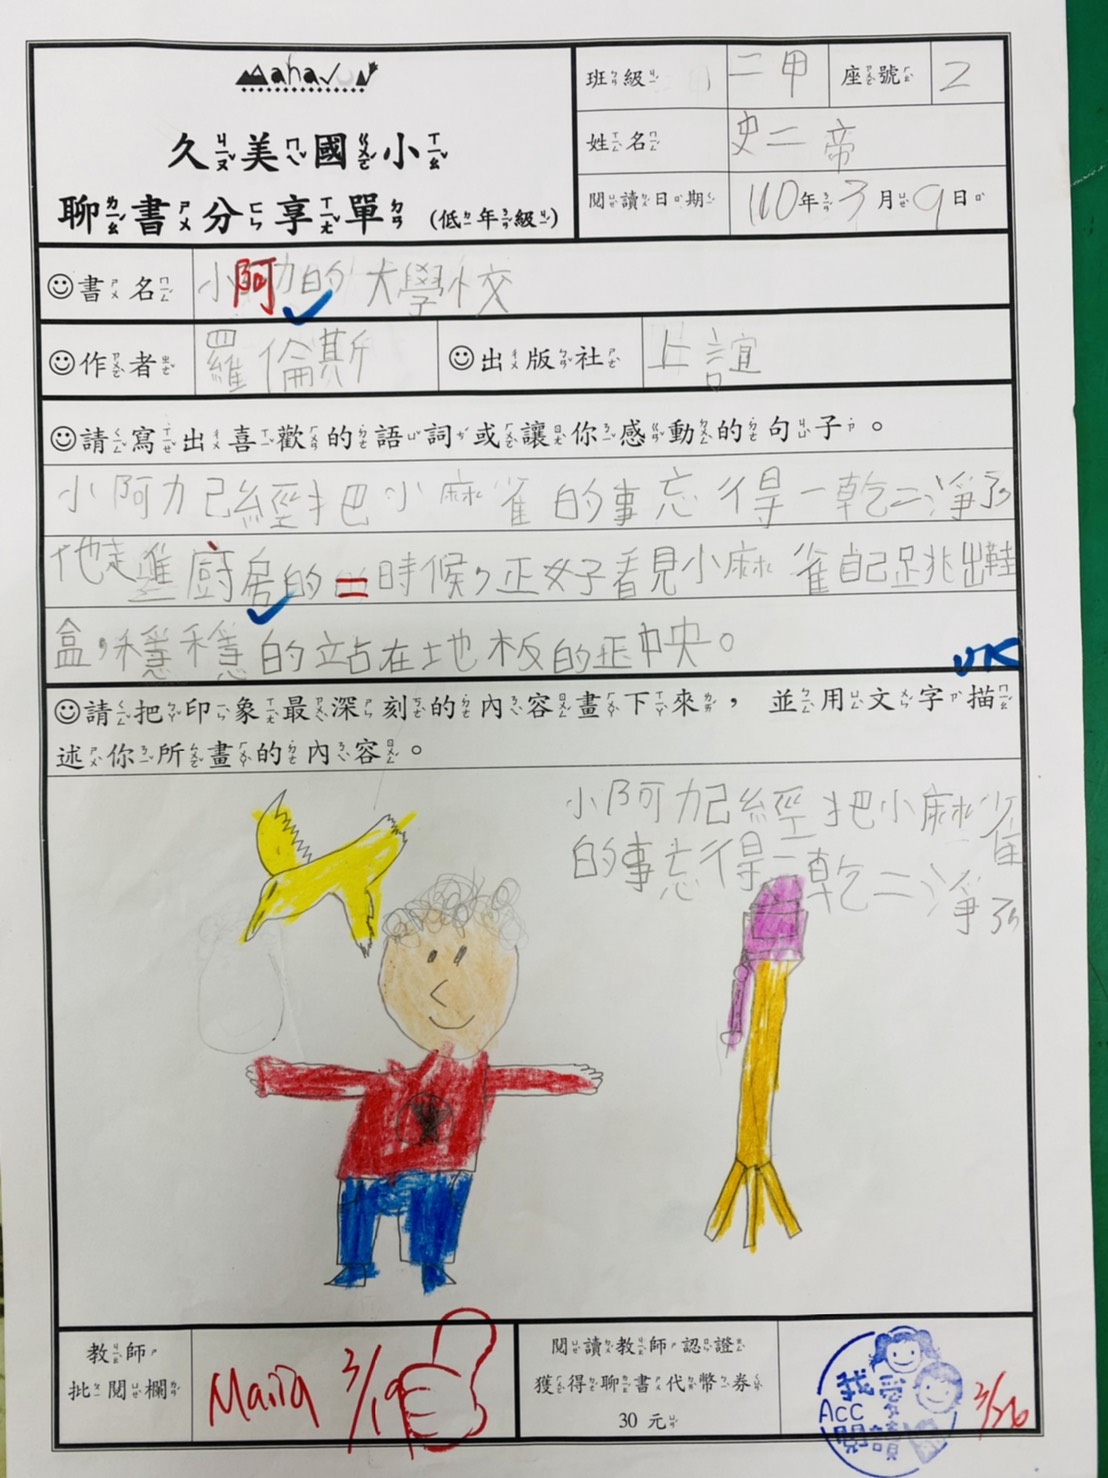 Mahavun
久美國小
聊書分享單(低年級)
班級 二甲 座號 2
姓名 史二帝
閱讀日期 110年3月9日
書名 小阿力的大學校
作者 羅倫斯 出版社 上誼
請寫出喜歡的語詞或讓你感動的句子。
小阿力已經把小麻雀的事忘得一乾二淨了
他走進廚房的時候,正好看見小麻雀自己跳出鞋
盒,穩穩的站在地板的正中央。
OK
請把印象最深刻的內容畫下來,並用文字描
述你所畫的內容。
小阿力已經把小麻雀
的事忘得一乾二淨了
教師
批閱欄
Maria 3/19
閱讀教師認證
獲得聊書代幣券
30元
我愛
ACC
閱讀
3/26